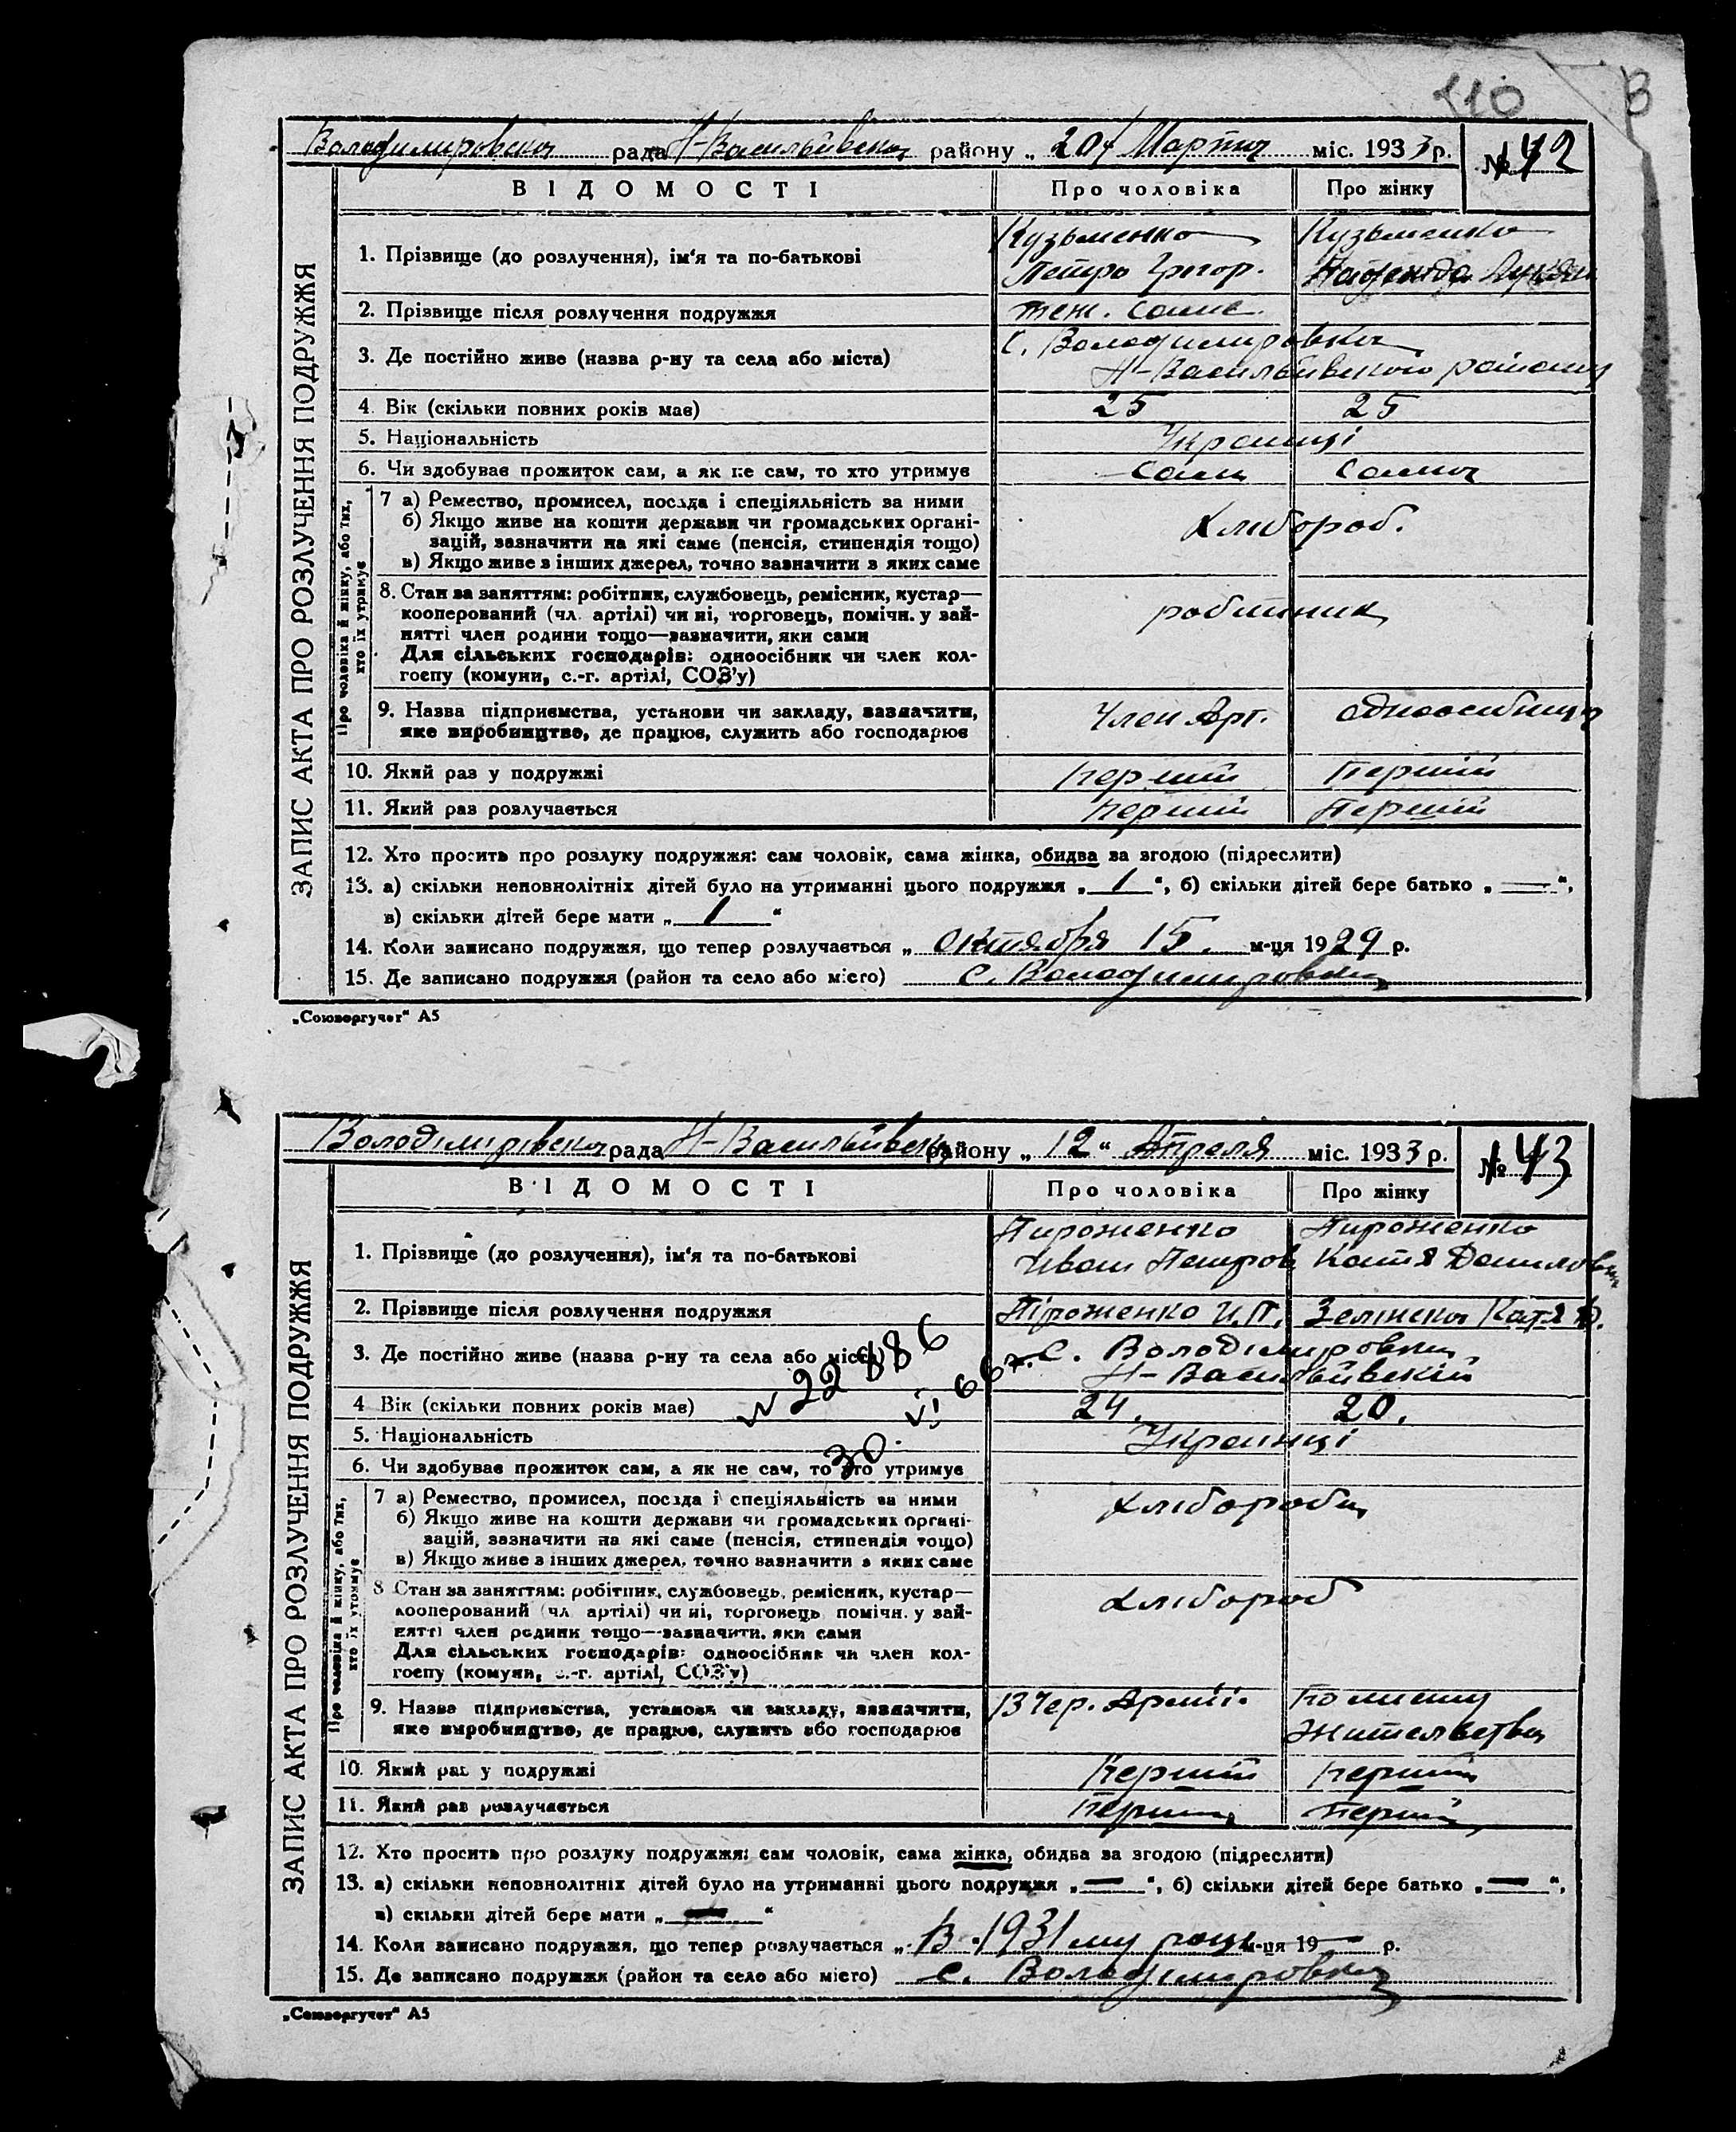 110
Володимировска рада Н-Василіївска району „ 20 " Марта міс. 1933 р. № 42
ЗАПИС АКТА ПРО РОЗЛУЧЕННЯ ПОДРУЖЖЯ
ВІДОМОСТІ Про чоловіка Про жінку
1. Прізвище (до розлучення), ім'я та по-батькові Кузьменко Петро Григор. Кузьменко
2. Прізвище після розлучення подружжя теж. саме.
3. Де постійно живе (назва р-ну та села або міста) С. Володимировка
Н-Василівского району
4. Вік (скільки повних років має) 25 25
5. Національність Украинці
6. Чи здобуває прожиток сам, а як не сам, то хто утримує сам сама
Про чоловіка й жінку, або тих, хто їх утримує
7 а) Ремество, промисел, посада і спеціяльність за ними
б) Якщо живе на кошти держави чи громадських органі-
зацій, зазначити на які саме (пенсія, стипендія тощо) хлібороб.
в) Якщо живе з інших джерел, точно зазначити з яких саме
8. Стан за заняттям: робітник, службовець, ремісник, кустар—
кооперований (чл. артілі) чи ні, торговець, помічн. у зай-
нятті член родини тощо—зазначити, яки сами
Для сільських господарів: одноосібник чи член кол-
госпу (комуни, с.-г. артілі, СОЗ'у)
9. Назва підприємства, установи чи закладу, зазначити,
яке виробництво, де працює, служить або господарює Член Арт.
10. Який раз у подружжі перший Перший
11. Який раз розлучається перший Перший
12. Хто просить про розлуку подружжя: сам чоловік, сама жінка, обидва за згодою (підреслити)
13. а) скільки неповнолітніх дітей було на утриманні цього подружжя „ 1 “, б) скільки дітей бере батько „ — “,
в) скільки дітей бере мати „ 1 “
14. Коли записано подружжя, що тепер розлучається „ Октября 15. м-ця 1929 р.
15. Де записано подружжя (район та село або місто) С. Володимировка
„Союзоргучет“ А5
Володімірівска рада Н-Василівска району „ 12 “ Апреля міс. 1933 р. № 43
ЗАПИС АКТА ПРО РОЗЛУЧЕННЯ ПОДРУЖЖЯ
ВІДОМОСТІ Про чоловіка Про жінку
1. Прізвище (до розлучення), ім'я та по-батькові Пироженко Иван Петров Пироженко Катя Даниловна
2. Прізвище після розлучення подружжя Піроженко И.П. Зелінска Катя Д.
3. Де постійно живе (назва р-ну та села або міста) С. Володіміровка
Н-Василівскій
№ 22 886
4 Вік (скільки повних років має) 24. 20.
5. Національність Украинці
6. Чи здобуває прожиток сам, а як не сам, то хто утримує
Про чоловіка й жінку, або тих, хто їх утримує
7 а) Ремество, промисел, посада і спеціяльність за ними
б) Якщо живе на кошти держави чи громадських органі-
зацій, зазначити на які саме (пенсія, стипендія тощо) хлібороби
в) Якщо живе з інших джерел, точно зазначити з яких саме
8 Стан за заняттям: робітник, службовець, ремісник, кустар—
кооперований (чл. артілі) чи ні, торговець, помічн. у зай- хлібороб
нятті член родини тощо—зазначити, яки сами
Для сільських господарів: одноосібник чи член кол-
госпу (комуни, с.-г. артілі, СОЗ'у)
9. Назва підприємства, установи чи закладу, зазначити, В Чер. Армії. По
яке виробництво, де працює, служить або господарює жительства
10. Який раз у подружжі Перший перший
11. Який раз розлучається перший перший
12. Хто просить про розлуку подружжя: сам чоловік, сама жінка, обидва за згодою (підреслити)
13. а) скільки неповнолітніх дітей було на утриманні цього подружжя „ — “, б) скільки дітей бере батько „ — “,
в) скільки дітей бере мати „ — “
14. Коли записано подружжя, що тепер розлучається „ В 1931 му році м-ця 19 — р.
15. Де записано подружжя (район та село або місто) с. Володіміровка
„Союзоргучет“ А5